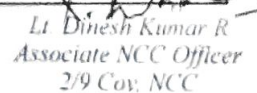 Lt. Dinesh Kumar R
Associate NCC Officer
2/9 Coy, NCC